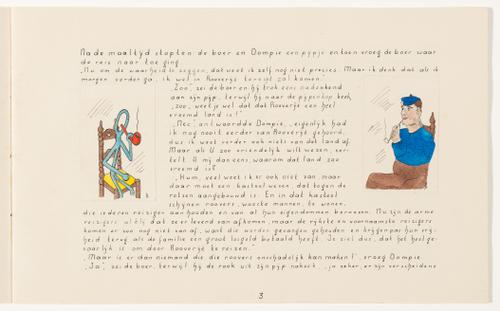 Na de maaltijd stopten de boer en Oompie een pijpje en toen vroeg de boer waar
de reis naar toe ging.
„Nu om de waarheid te zeggen, dat weet ik zelf nog niet precies. Maar ik denk dat als ik
morgen verder ga, ik wel in Rooverije terecht zal komen."
„Zoo", zei de boer en hij trok eens nadenkend
aan zijn pijp, terwijl hij naar de pijpenkop keek,
„zoo, weet je wel dat Rooverije een heel
vreemd land is!"
„Nee", antwoordde Oompie, „eigenlijk had
ik nog nooit eerder van Rooverije gehoord,
dus ik weet verder ook niets van dat land af.
Maar als U zoo vriendelijk wilt wezen, ver-
telt U mij dan eens, waarom dat land zoo
vreemd is?"
„Hum, veel weet ik er ook niet van, maar
daar moet een kasteel wezen, dat tegen de
rotsen aangebouwd is. En in dat kasteel
schijnen roovers, woeste mannen, te wonen,
die iederen reiziger aanhouden en van al hun eigendommen berooven. Nu zijn de arme
reizigers er nog niet van af, want die worden gevangen gehouden en krijgen pas hun vrij-
heid terug als de familie een groot losgeld betaald heeft. Je ziet dus, dat het heel ge-
vaarlijk is om door Rooverije te reizen."
„Maar is er dan niemand die die roovers onschadelijk kan maken?", vroeg Oompie.
„Ja", zei de boer, terwijl hij de rook uit zijn pijp nakeek, „ja zeker, er zijn verscheidene
3